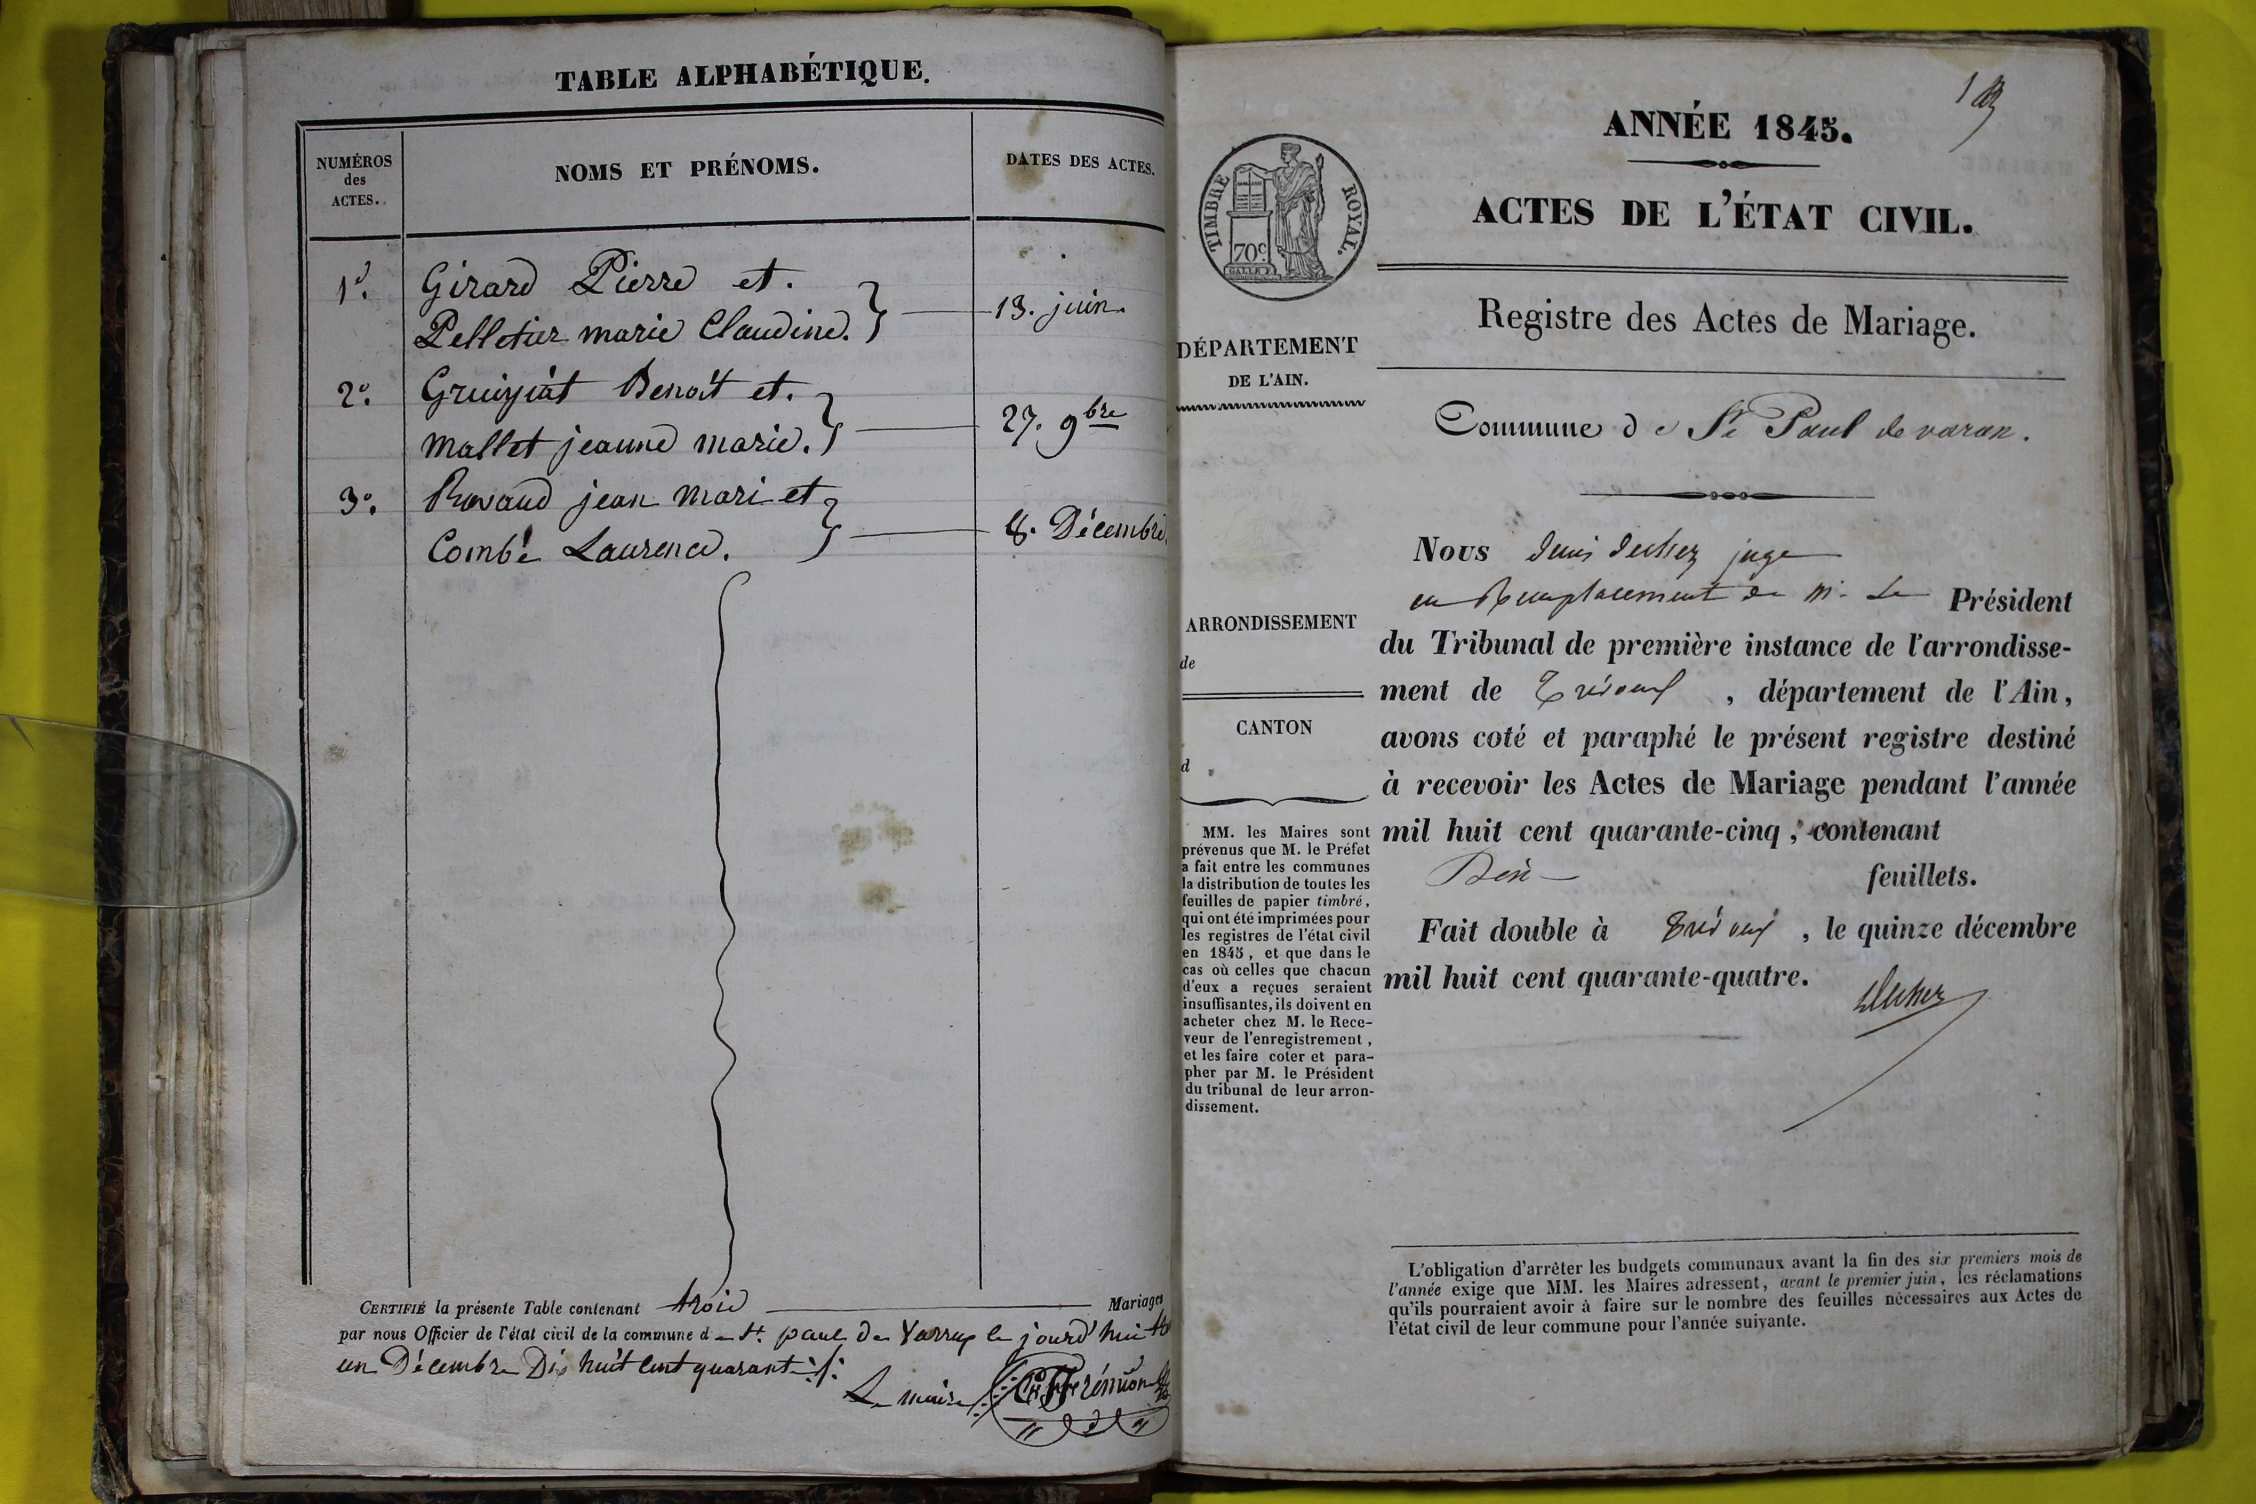 TABLE ALPHABÉTIQUE.
NUMÉROS
des
ACTES.
NOMS ET PRÉNOMS.
DATES DES ACTES.
1º.
Girard Pierre et.
Pelletier marie Claudine.
13. juin.
2º.
Gruyiat Benoit et.
Mallet jeanne marie.
27. 9bre
3º.
Ravaud jean Mari et
Combe Laurence.
8. Décembre.
CERTIFIÉ la présente Table contenant trois Mariages
par nous Officier de l'état civil de la commune de St. paul de Varrax le jourd'hui
un Décembre Dix huit cent quarante
Le maire
ANNÉE 1845.
ACTES DE L'ÉTAT CIVIL.
TIMBRE ROYAL.
70c
Registre des Actes de Mariage.
DÉPARTEMENT
DE L'AIN.
Commune de St Paul de varax.
Nous denis ducher juge
en Remplacement de M. Le Président
ARRONDISSEMENT
de
CANTON
d
du Tribunal de première instance de l'arrondisse-
ment de Trévoux, département de l'Ain,
avons coté et paraphé le présent registre destiné
à recevoir les Actes de Mariage pendant l'année
mil huit cent quarante-cinq, contenant
feuillets.
Fait double à Trévoux, le quinze décembre
mil huit cent quarante-quatre.
MM. les Maires sont
prévenus que M. le Préfet
a fait entre les communes
la distribution de toutes les
feuilles de papier timbré,
qui ont été imprimées pour
les registres de l'état civil
en 1845, et que dans le
cas où celles que chacun
d'eux a reçues seraient
insuffisantes, ils doivent en
acheter chez M. le Rece-
veur de l'enregistrement,
et les faire coter et para-
pher par M. le Président
du tribunal de leur arron-
dissement.
L'obligation d'arrêter les budgets communaux avant la fin des six premiers mois de
l'année exige que MM. les Maires adressent, avant le premier juin, les réclamations
qu'ils pourraient avoir à faire sur le nombre des feuilles nécessaires aux Actes de
l'état civil de leur commune pour l'année suivante.